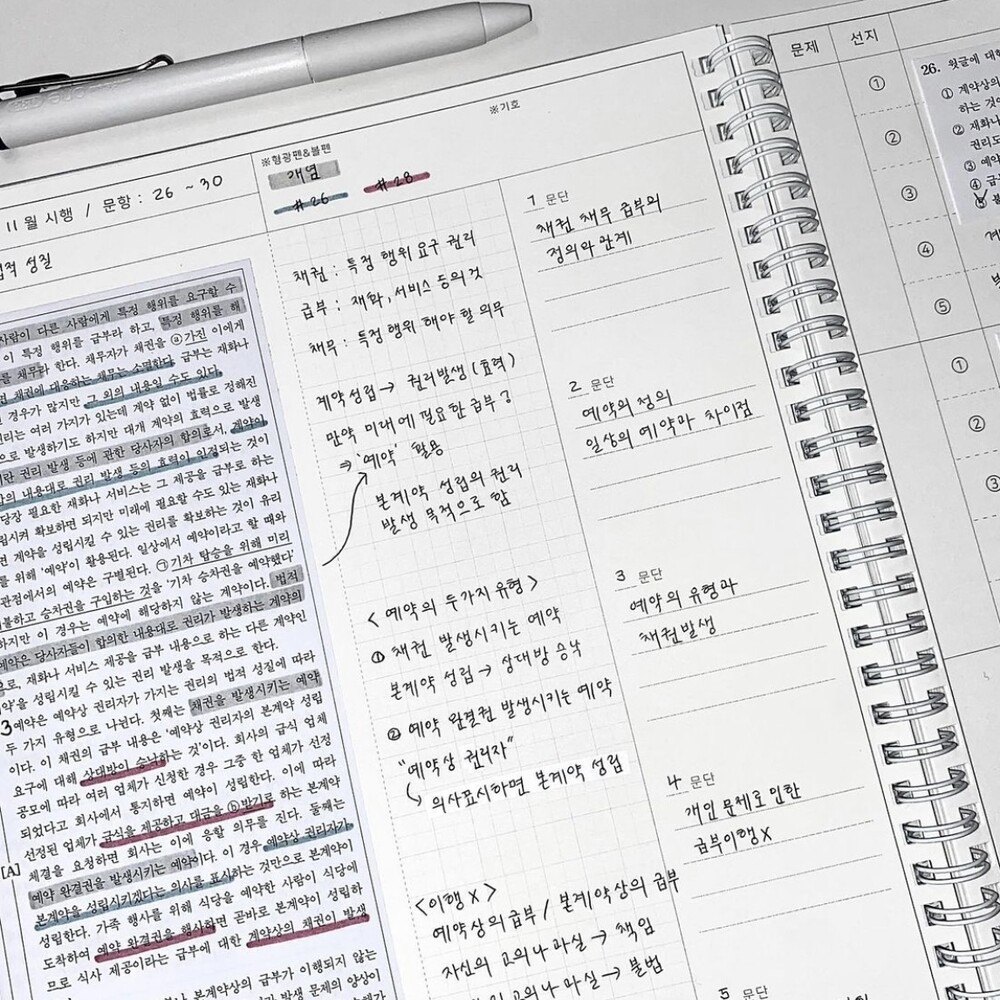 ※기호
※형광펜&볼펜
개념
#26
#28
11월 시행 / 문항 : 26 ~ 30
적 성질
사람이 다른 사람에게 특정 행위를 요구할 수
이 특정 행위를 급부라 하고, 특정 행위를 해
를 채무라 한다. 채무자가 채권을 ⓐ가진 이에게
채권에 대응하는 채무는 소멸한다. 급부는 재화나
경우가 많지만 그 외의 내용일 수도 있다.
리는 여러 가지가 있는데 계약 없이 법률로 정해진
으로 발생하기도 하지만 대개 계약의 효력으로 발생
란 권리 발생 등에 관한 당사자의 합의로서, 계약이
의 내용대로 권리 발생 등의 효력이 인정되는 것이
당장 필요한 재화나 서비스는 그 제공을 급부로 하는
립시켜 확보하면 되지만 미래에 필요할 수도 있는 재화나
면 계약을 성립시킬 수 있는 권리를 확보하는 것이 유리
를 위해 '예약'이 활용된다. 일상에서 예약이라고 할 때와
관점에서의 예약은 구별된다. ㉠기차 탑승을 위해 미리
불하고 승차권을 구입하는 것을 '기차 승차권을 예약했다'
하지만 이 경우는 예약에 해당하지 않는 계약이다. 법적
예약은 당사자들이 합의한 내용대로 권리가 발생하는 계약의
로, 재화나 서비스 제공을 급부 내용으로 하는 다른 계약인
'을 성립시킬 수 있는 권리 발생을 목적으로 한다.
3 예약은 예약상 권리자가 가지는 권리의 법적 성질에 따라
두 가지 유형으로 나뉜다. 첫째는 채권을 발생시키는 예약
이다. 이 채권의 급부 내용은 '예약상 권리자의 본계약 성립
요구에 대해 상대방이 승낙하는 것'이다. 회사의 급식 업체
공모에 따라 여러 업체가 신청한 경우 그중 한 업체가 선정
되었다고 회사에서 통지하면 예약이 성립한다. 이에 따라
선정된 업체가 급식을 제공하고 대금을 ⓑ받기로 하는 본계약
체결을 요청하면 회사는 이에 응할 의무를 진다. 둘째는
[A]
예약 완결권을 발생시키는 예약이다. 이 경우 예약상 권리자가
본계약을 성립시키겠다는 의사를 표시하는 것만으로 본계약이
성립한다. 가족 행사를 위해 식당을 예약한 사람이 식당에
도착하여 예약 완결권을 행사하면 곧바로 본계약이 성립하
므로 식사 제공이라는 급부에 대한 계약상의 채권이 발생
나 본계약상의 급부가 이행되지 않는
발생 문제의 양상이
채권 : 특정 행위 요구 권리
급부 : 재화, 서비스 등의 것
채무 : 특정 행위 해야 할 의무
계약성립→ 권리발생 (효력)
만약 미래에 필요한 급부?
⇒ '예약' 활용
본계약 성립의 권리
발생 목적으로 함
<예약의 두가지 유형>
① 채권 발생시키는 예약
본계약 성립 → 상대방 승낙
② 예약 완결권 발생시키는 예약
"예약상 권리자"
의사표시하면 본계약 성립
<이행 X>
예약상의 급부 / 본계약상의 급부
자신의 고의나 과실 → 책임
고의나 과실 → 불법
1 문단
채권 채무 급부의
정의와 관계
2 문단
예약의 정의
일상의 예약과 차이점
3 문단
예약의 유형과
채권발생
4 문단
개인 문제로 인한
급부이행 X
5 문단
문제
선지
①
②
③
④
⑤
①
②
③
26. 윗글에 대
① 계약상의
하는 것이
② 재화나
권리도
③ 예약
④ 급부